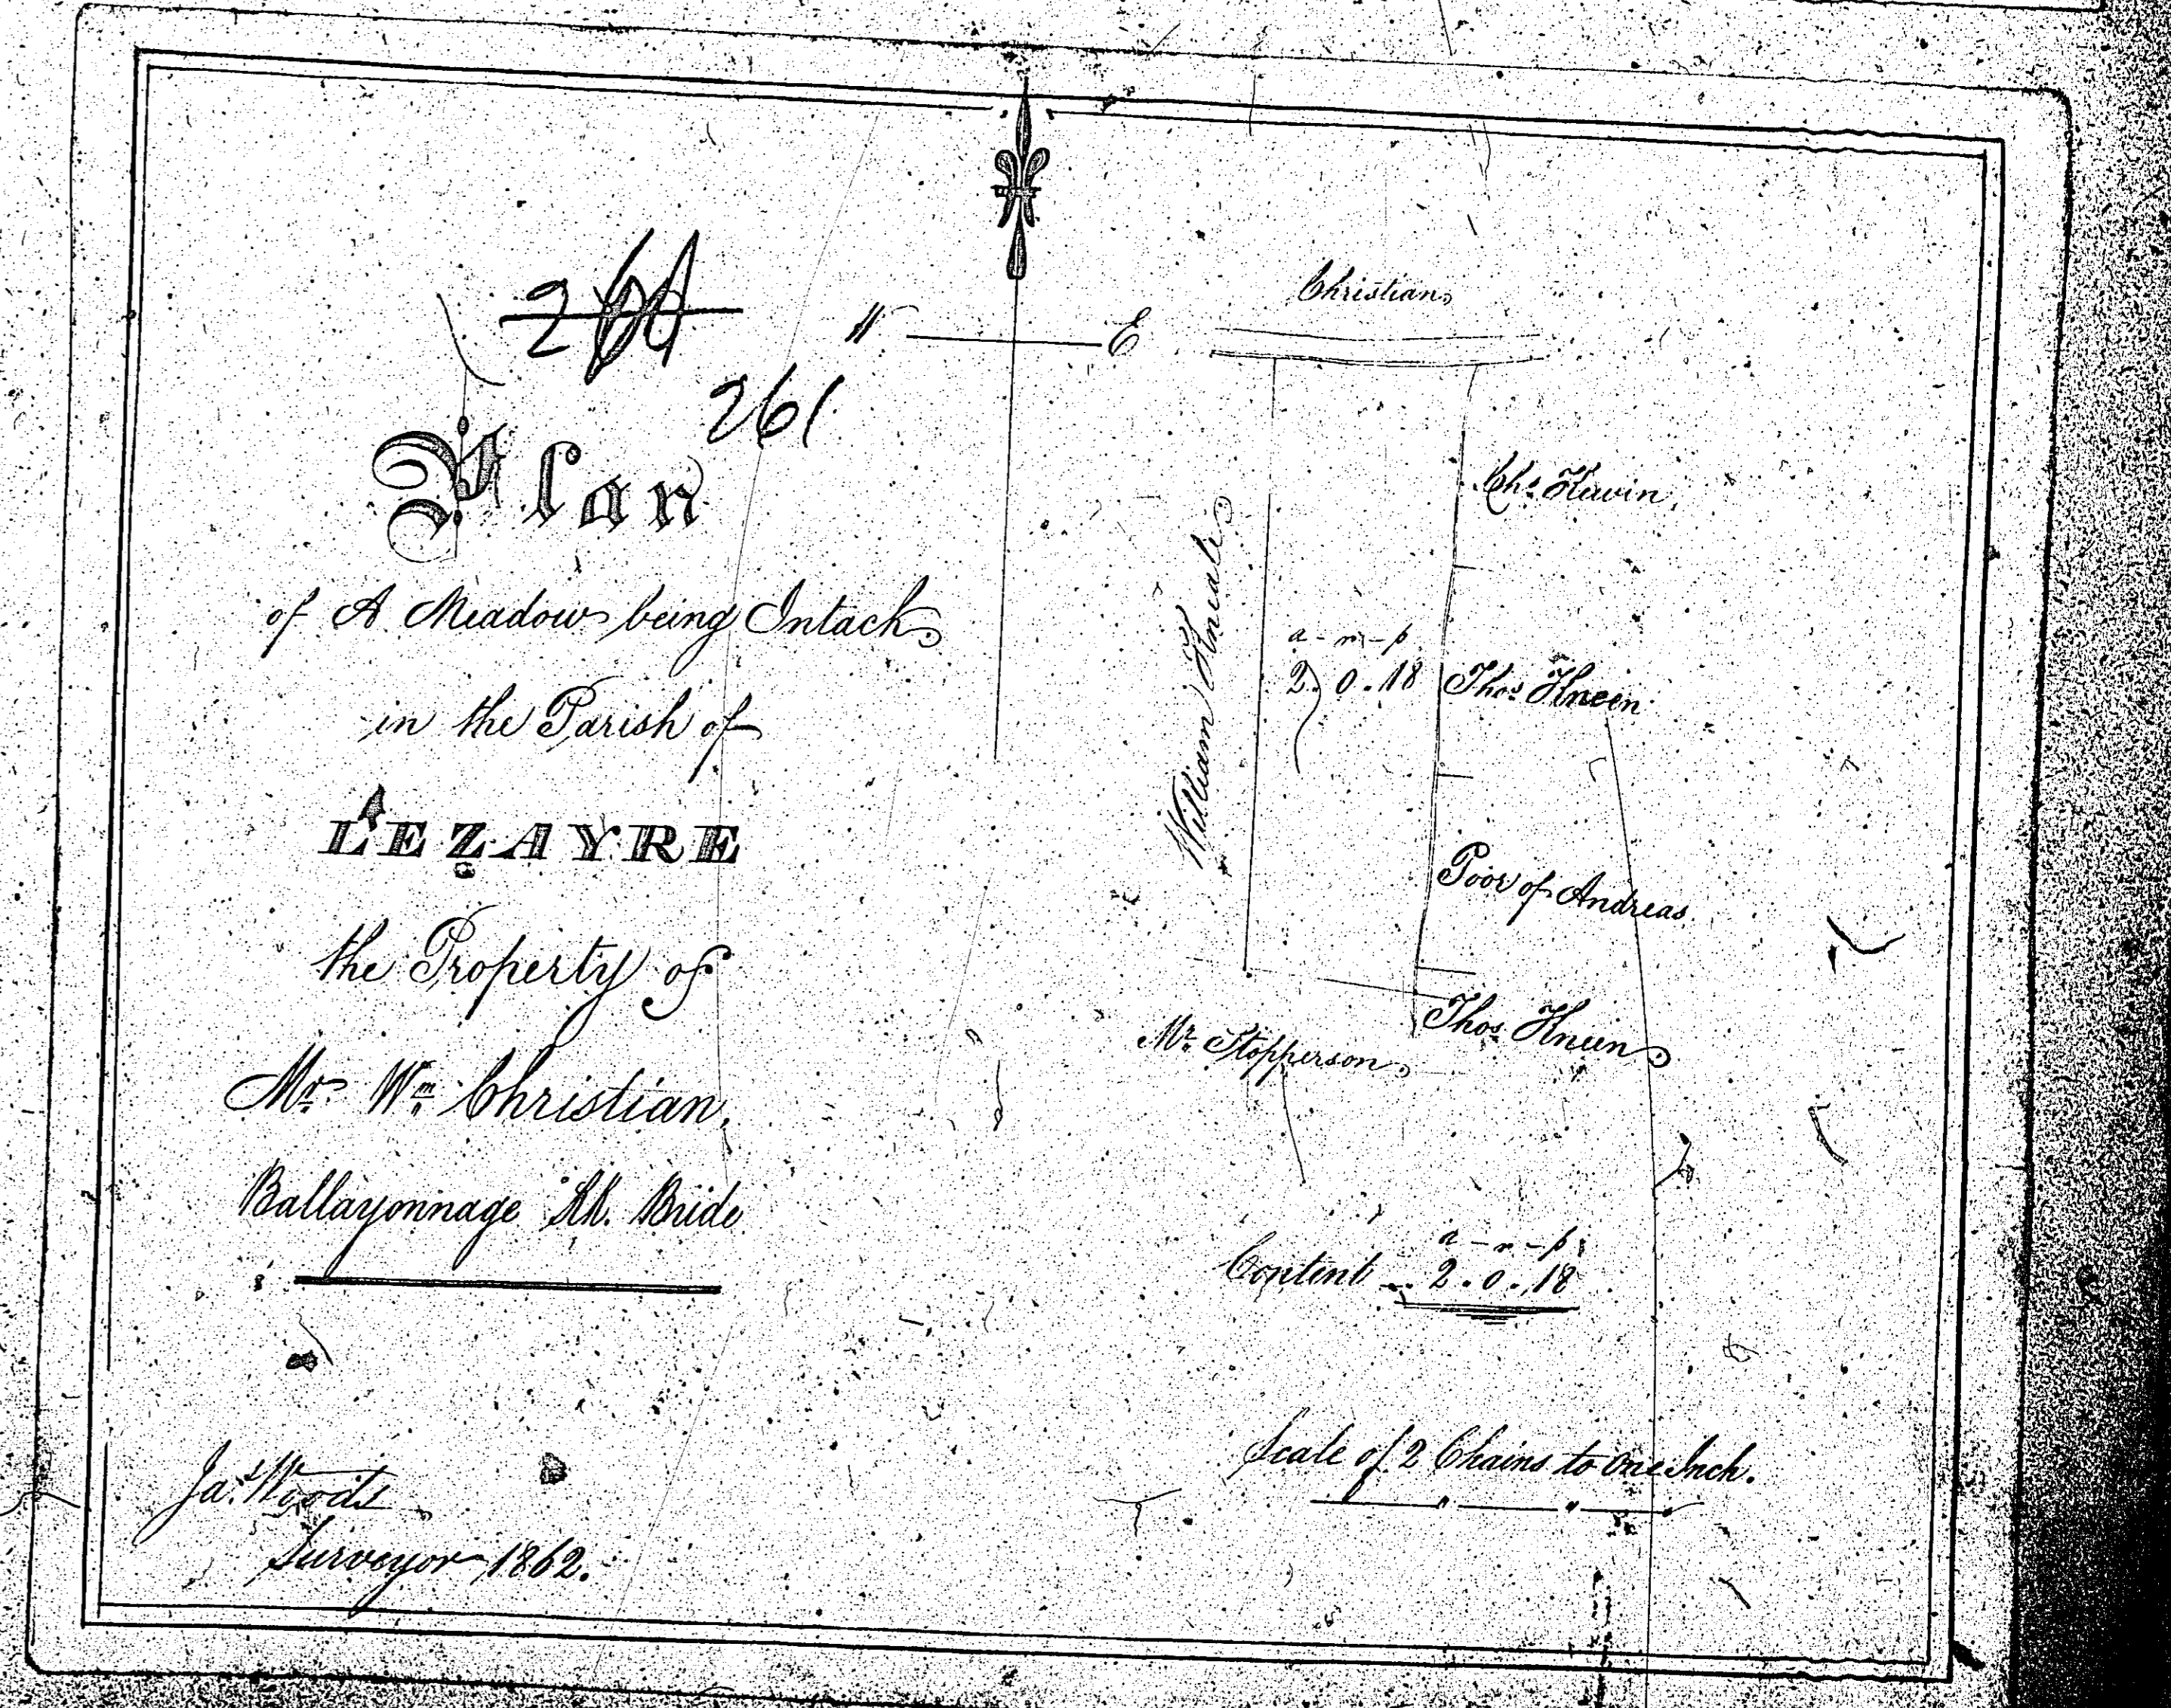 261
Plan
of A Meadow being Intack
in the Parish of
LEZAYRE
the Property of
Mr. Wm. Christian.
Ballayonnage Kk. Bride
Jas. Woods
Surveyor 1862.
W E
Christian
William Kneale
Chs.
a - r - p
2. 0. 18
Thos. Kneen
Poor of Andreas
Thos. Kneen
Mr. Stopherson
a - r - p
Content 2. 0. 18
Scale of 2 Chains to One Inch.